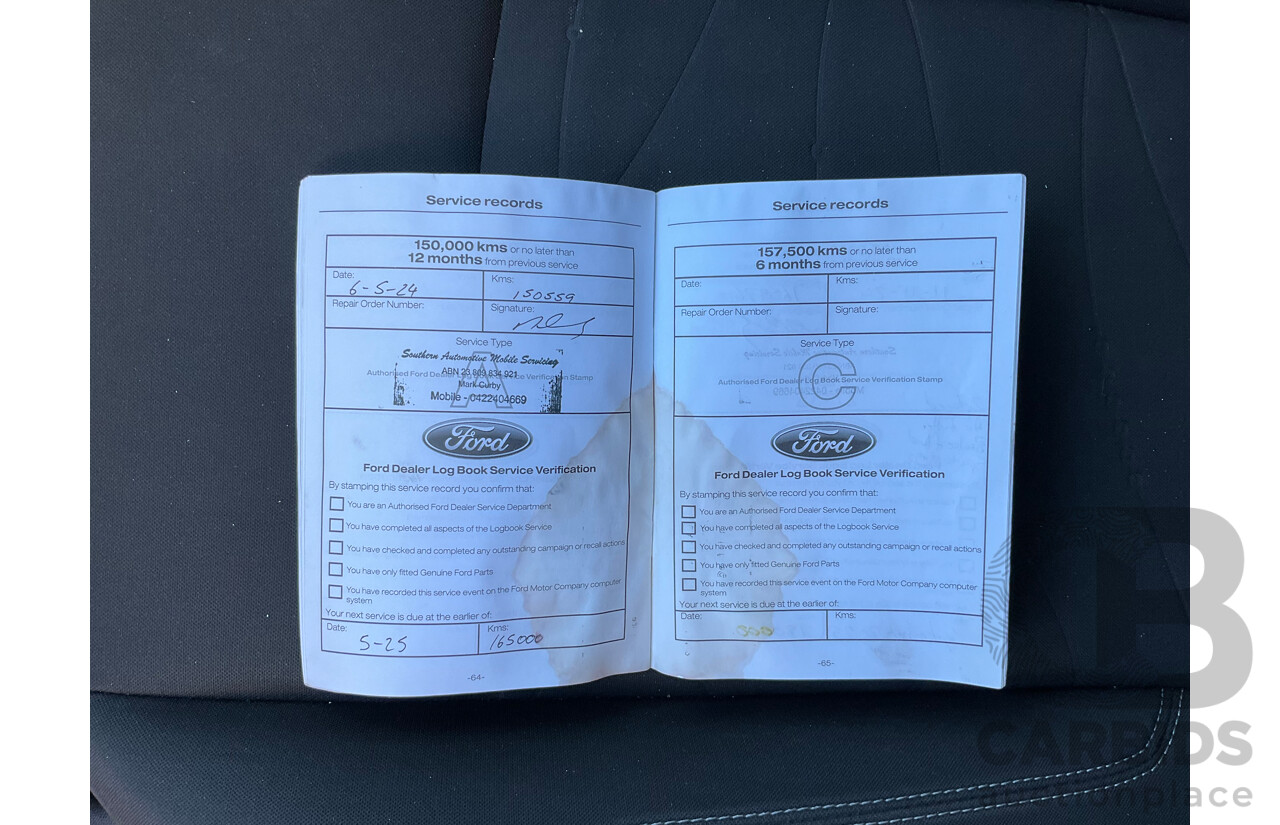 Service records
150,000 kms or no later than
12 months from previous service
Date:
6-5-24
Kms:
150559
Repair Order Number:
Signature:
Service Type
A
Southern Automotive Mobile Servicing
ABN 23 809 834 921
Authorised Ford Dealer Log Book Service Verification Stamp
Mark Curby
Mobile - 0422404669
Ford
Ford Dealer Log Book Service Verification
By stamping this service record you confirm that:
You are an Authorised Ford Dealer Service Department
You have completed all aspects of the Logbook Service
You have checked and completed any outstanding campaign or recall actions
You have only fitted Genuine Ford Parts
You have recorded this service event on the Ford Motor Company computer
system
Your next service is due at the earlier of:
Date:
5-25
Kms:
165000
-64-
Service records
157,500 kms or no later than
6 months from previous service
Date:
Kms:
Repair Order Number:
Signature:
Service Type
C
Authorised Ford Dealer Log Book Service Verification Stamp
Ford
Ford Dealer Log Book Service Verification
By stamping this service record you confirm that:
You are an Authorised Ford Dealer Service Department
You have completed all aspects of the Logbook Service
You have checked and completed any outstanding campaign or recall actions
You have only fitted Genuine Ford Parts
You have recorded this service event on the Ford Motor Company computer
system
Your next service is due at the earlier of:
Date:
Kms:
-65-
CARBIDS
auctionplace